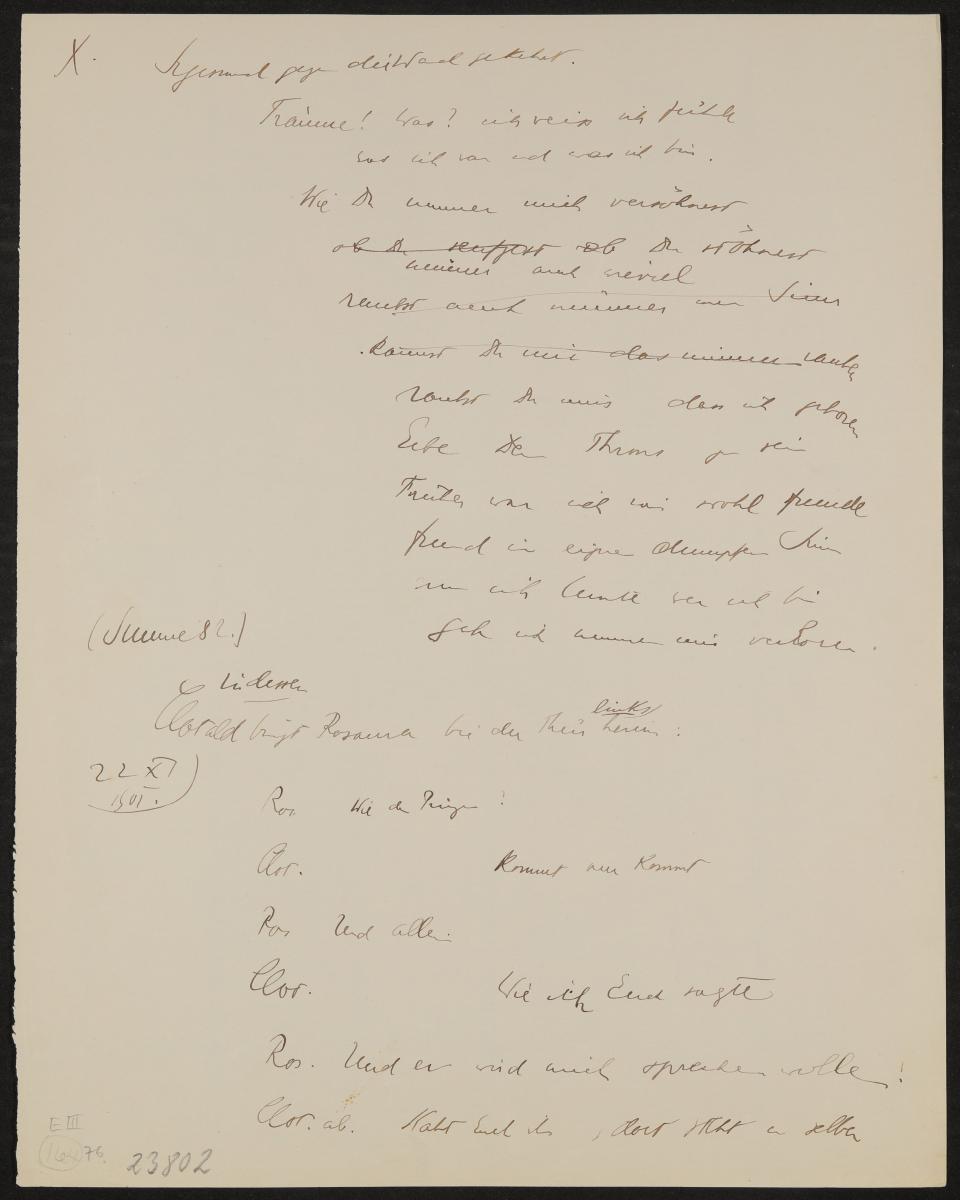 X. Sigismund gegen die Wand gekehrt.
Träume! Was? ich weiss ich fühle
was ich war und was ich bin.
Wie Du immer mich versöhnest
ob Du seufzest ob Du stöhnest
nimmer auch wieviel
raubst auch nimmer nun Sinn
kannst Du mir das nimmer rauben
raubst Du mir dass ich geboren
Erbe Des Throns zu sein
Früher war ich mir wohl fremde
fremd in eignen dumpfen Sinn
nun ich lernte wer ich bin
geh ich nimmer mir verloren.
(Summe 82.)
indessen
Clotald bringt Rosaura bei der Thür links herein:
22 XI
1901.
Ros Wie der Prinz?
Clot. Kommt nur kommt
Ros Und allein
Clot. Wie ich Euch sagte
Ros. Und er wird mich sprechen wollen!
Clot. ab. Naht Euch ihm, dort steht er selber
E III
164 76.
23802